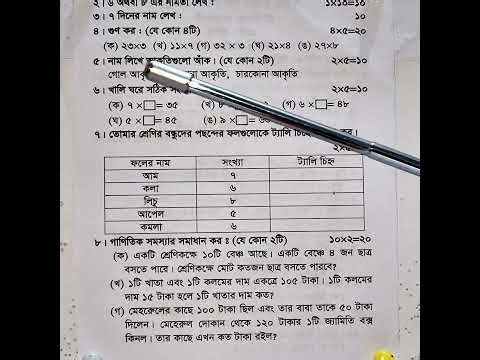 ২। ৬ অথবা ৮ এর নামতা লেখ : ১×১০=১০
৩। ৭ দিনের নাম লেখ : ১০
৪। গুণ কর : (যে কোন ৪টি) ৪×৫=২০
(ক) ২৩×৩ (খ) ১১×৭ (গ) ৩২ × ৩ (ঘ) ২১×৪ (ঙ) ২৭×৮
৫। নাম লিখে আকৃতিগুলো আঁক। (যে কোন ২টি) ২×৫=১০
গোল আকৃতি, আকৃতি, চারকোনা আকৃতি
৬। খালি ঘরে সঠিক ২×৫=১০
(ক) ৭ ×□= ৩৫ (খ) ৮ (গ) ৬ ×□= ৪৮
(ঘ) ৫ ×□= ৪৫ (ঙ) ৯ ×□=
৭। তোমার শ্রেণির বন্ধুদের পছন্দের ফলগুলোকে ট্যালি চিহ্ন কর।
২×৫
ফলের নাম সংখ্যা ট্যালি চিহ্ন
আম ৭
কলা ৬
লিচু ৮
আপেল ৫
কমলা ৬
৮। গাণিতিক সমস্যার সমাধান কর ঃ (যে কোন ২টি) ১০×২=২০
(ক) একটি শ্রেণিকক্ষে ১০টি বেঞ্চ আছে। একটি বেঞ্চে ৪ জন ছাত্র
বসতে পারে। শ্রেণিকক্ষে মোট কতজন ছাত্র বসতে পারবে?
(খ) ১টি খাতা এবং ১টি কলমের দাম একত্রে ১০৫ টাকা। ১টি কলমের
দাম ১৫ টাকা হলে ১টি খাতার দাম কত?
(গ) মেহেরুলের কাছে ১০০ টাকা ছিল এবং তার বাবা তাকে ৫০ টাকা
দিলেন। মেহেরুল দোকান থেকে ১২০ টাকার ১টি জ্যামিতি বক্স
কিনল। তার কাছে এখন কত টাকা রইল?